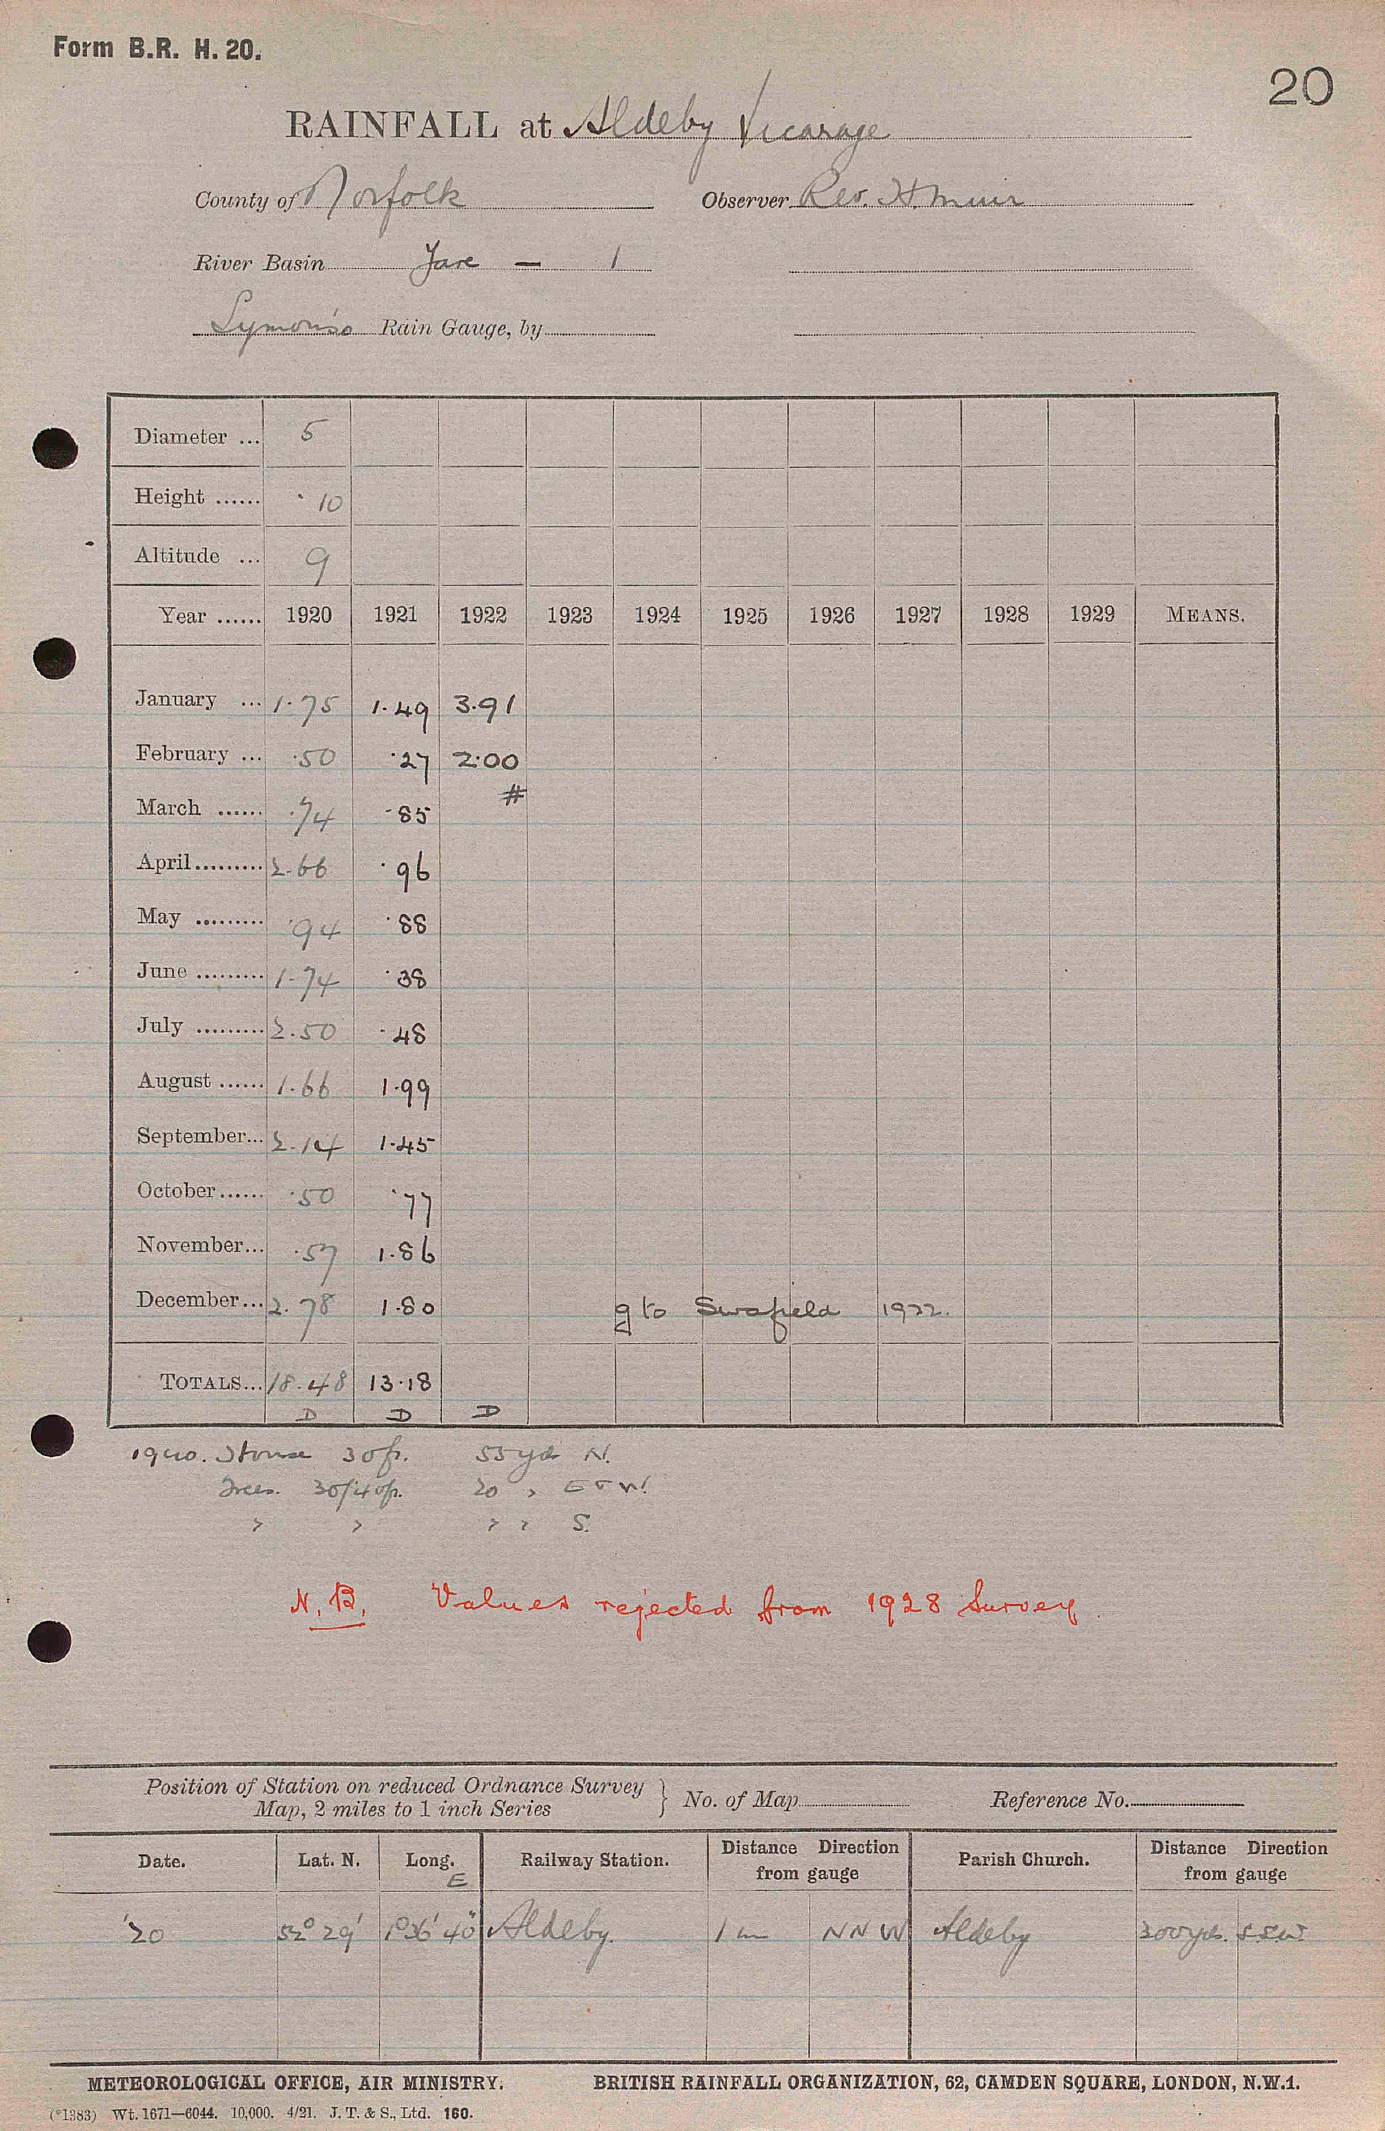 Form B.R. H. 20.
20
RAINFALL at Aldeby Vicarage
County of Norfolk Observer Rev. H. Muir
River Basin Yare — 1
Symons's Rain Gauge, by
Diameter ... 5
Height ...... ·10
Altitude ... 9
Year ...... 1920 1921 1922 1923 1924 1925 1926 1927 1928 1929 MEANS.
January ... 1.75 1.49 3.91
February ... .50 .27 2.00
March ...... .74 .85 #
April......... 2.66 .96
May ......... .94 .88
June ......... 1.74 .38
July ......... 2.50 .48
August ...... 1.66 1.99
September... 2.14 1.45
October...... .50 .77
November... .57 1.86
December... 2.78 1.80 g to Swafield 1922.
TOTALS... 18.48 13.18
D D D
1920. House 30ft. 55 yds N.
Trees. 30/40ft. 20 " E & W.
" " " " S.
N.B. Values rejected from 1928 Survey.
Position of Station on reduced Ordnance Survey Map, 2 miles to 1 inch Series } No. of Map Reference No.
Date. Lat. N. Long. E Railway Station. Distance Direction from gauge Parish Church. Distance Direction from gauge
'20 52° 29' 1° 36' 40" Aldeby. 1 m NNW Aldeby 300 yds. S.S.W.
METEOROLOGICAL OFFICE, AIR MINISTRY. BRITISH RAINFALL ORGANIZATION, 62, CAMDEN SQUARE, LONDON, N.W.1.
(*1383) Wt. 1671—6044. 10,000. 4/21. J. T. & S., Ltd. 160.